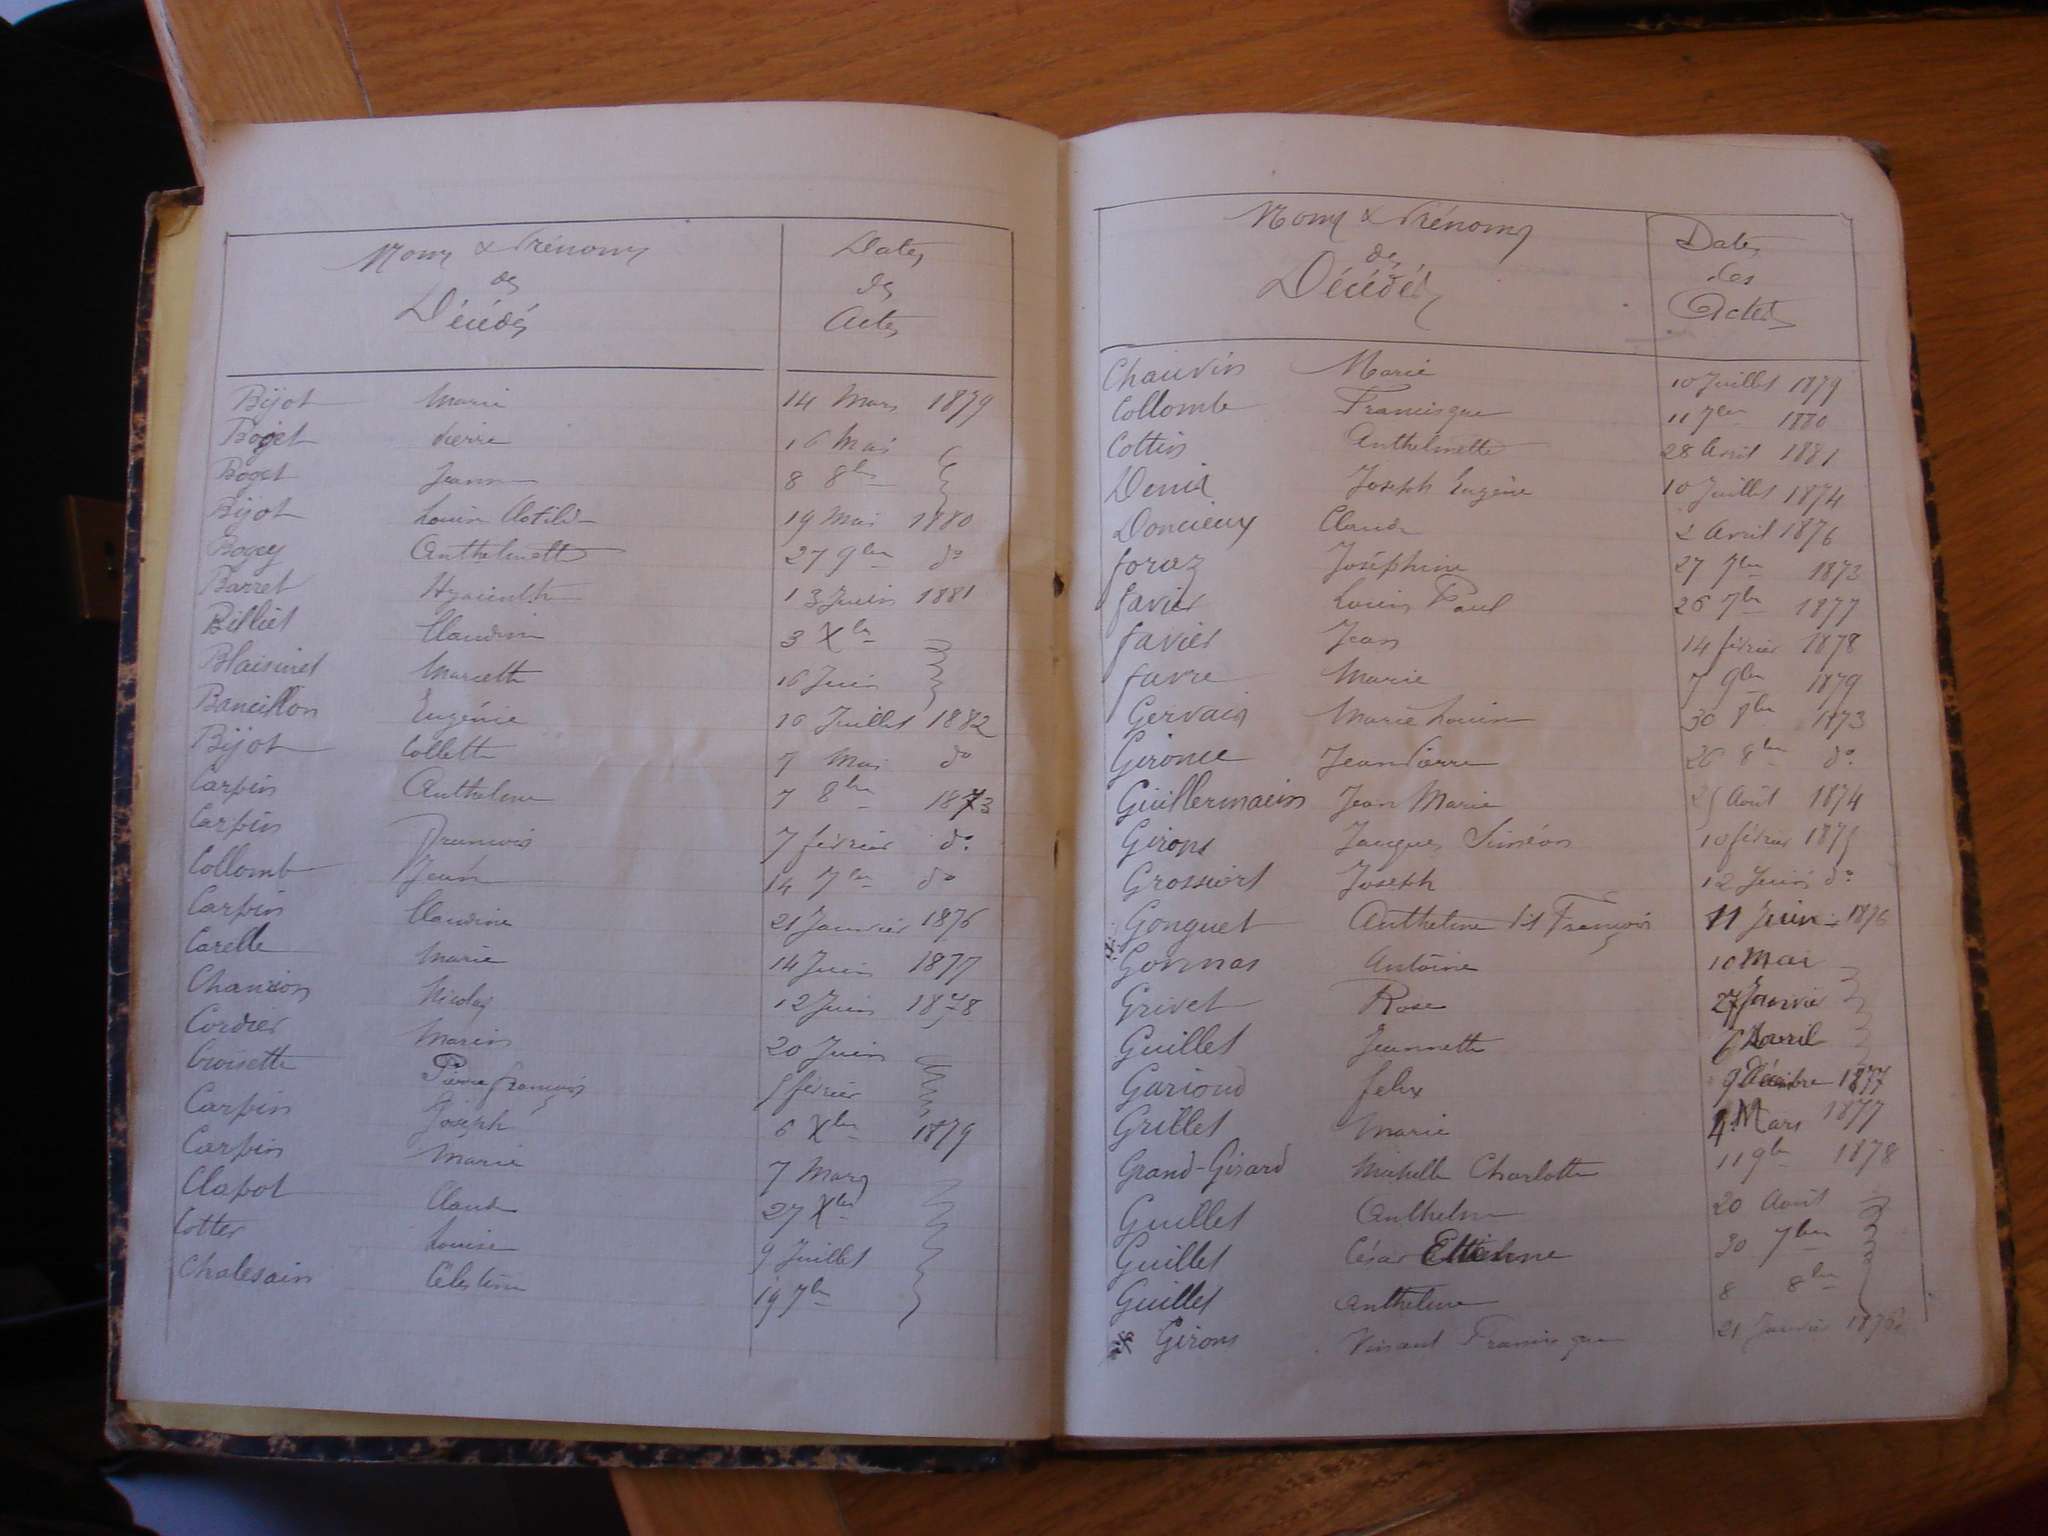 Noms & Prénoms
des
Décédés
Dates
des
Actes
Bijot Marie 14 Mars 1879
Boget Pierre 16 Mai
Boget Jeanne 8 8bre
Bijot Louise Clotilde 19 Mai 1880
Bogey Anthelmette 27 9bre do
Barret Hyacinthe 13 Juin 1881
Billiet Claudine 3 Xbre
Marcette 16 Juin
Bancillon Eugénie 10 Juillet 1882
Bijot Collette 7 Mai do
Carpin Anthelme 7 8bre 1873
Carpin François 7 février do
Collomb Jean 14 7bre do
Carpin Claudine 21 Janvier 1876
Carelle Marie 14 Juin 1877
Chanvion Nicolas 12 Juin 1878
Cordier Marin 20 Juin
Croisette Pierre françois 5 février
Carpin Joseph 6 Xbre 1879
Carpin Marie 7 Mars
Clapot Claude 27 Xbre
Cotter Louise 9 Juillet
Chalesain Célestine 19 7bre
Noms & Prénoms
des
Décédés
Dates
des
Actes
Chauvin Marie 10 Juillet 1879
Collombe Francisque 11 7bre 1880
Cottin Anthelmette 28 Avril 1881
Denis Joseph Eugène 10 Juillet 1874
Doncieux Claude 2 Avril 1876
foraz Joséphine 27 7bre 1873
favier Louis Paul 26 7bre 1877
favier Jean 14 février 1878
favre Marie 7 9bre 1879
Gervais Marie Louise 30 8bre 1873
Jean Pierre 26 8bre do
Guillermain Jean Marie 25 Août 1874
Girons Jacques Siméon 10 février 1875
Joseph 12 Juin do
Gonguet Anthelme dit François 11 Juin 1876
Gonnas Antoine 10 Mai
Grivet Rose 27 Janvier
Guillet Jeannette 6 Avril
Gariond felix 9 Décembre 1877
Grillet Marie 4 Mars 1877
Grand-Girard Michelle Charlotte 11 9bre 1878
Guillet Anthelme 20 Août
Guillet César Etienne 30 7bre
Guillet Anthelme 8 8bre
Girons Vincent Francisque 21 Janvier 1876